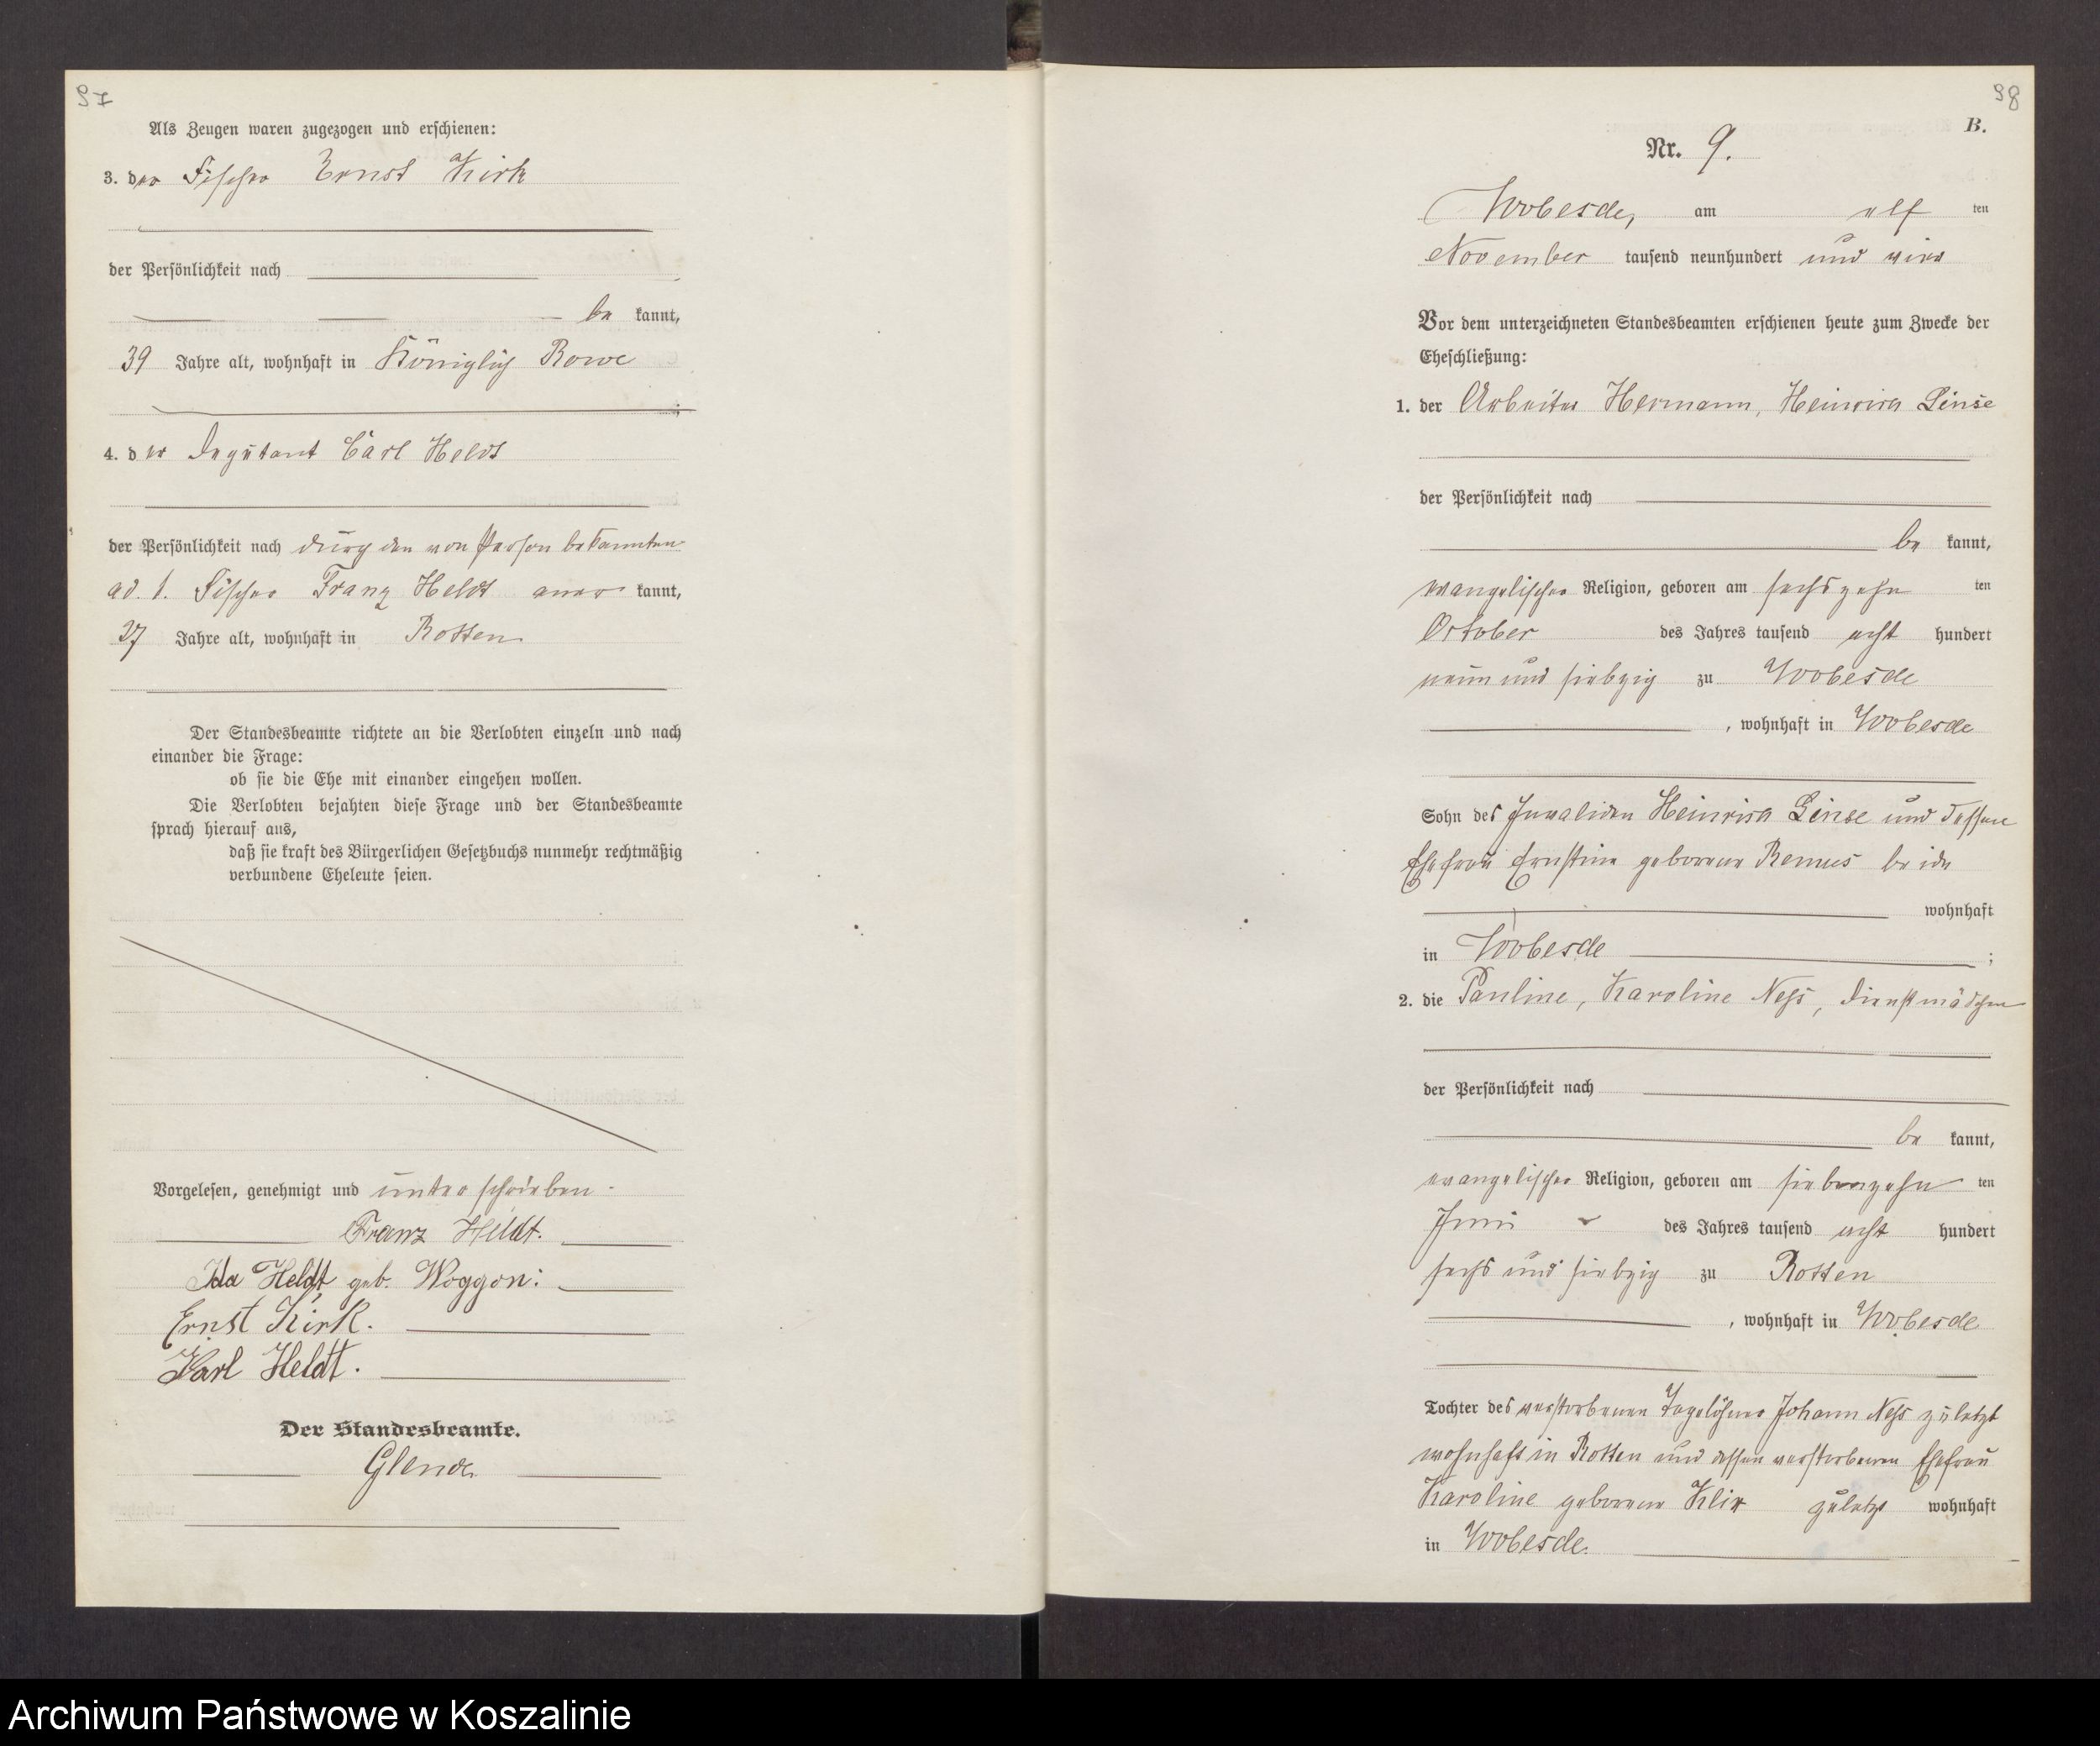 97
Als Zeugen waren zugezogen und erschienen:
3. der Fischer Ernst Kirk
der Persönlichkeit nach
be kannt,
39 Jahre alt, wohnhaft in Königlich Rowe
;
4. der Deputant Carl Heldt
der Persönlichkeit nach durch den von Person bekannten
ad. 1. Fischer Franz Heldt aner kannt,
27 Jahre alt, wohnhaft in Rotten
Der Standesbeamte richtete an die Verlobten einzeln und nach
einander die Frage:
ob sie die Ehe mit einander eingehen wollen.
Die Verlobten bejahten diese Frage und der Standesbeamte
sprach hierauf aus,
daß sie kraft des Bürgerlichen Gesetzbuchs nunmehr rechtmäßig
verbundene Eheleute seien.
Vorgelesen, genehmigt und unterschrieben
Franz Heldt.
Ida Heldt geb. Woggon:
Ernst Kirk.
Karl Heldt.
Der Standesbeamte.
98
B.
Nr. 9.
Wobesde, am elf ten
November tausend neunhundert und vier
Vor dem unterzeichneten Standesbeamten erschienen heute zum Zwecke der
Eheschließung:
1. der Arbeiter Hermann, Heinrich Linse
der Persönlichkeit nach
be kannt,
evangelischer Religion, geboren am sechszehn ten
October des Jahres tausend acht hundert
neun und siebzig zu Wobesde
, wohnhaft in Wobesde
Sohn des Invaliden Heinrich Linse und dessen
Ehefrau Ernstine geborene Remus beide
wohnhaft
in Wobesde ;
2. die Pauline, Karoline Neß, Dienstmädchen
der Persönlichkeit nach
be kannt,
evangelischer Religion, geboren am siebenzehn ten
Juni des Jahres tausend acht hundert
sechs und siebzig zu Rotten
, wohnhaft in Wobesde
Tochter des verstorbenen Tagelöhner Johann Neß zuletzt
wohnhaft in Rotten und dessen verstorbenen Ehefrau
Karoline geborene zuletzt wohnhaft
in Wobesde.
Archiwum Państwowe w Koszalinie